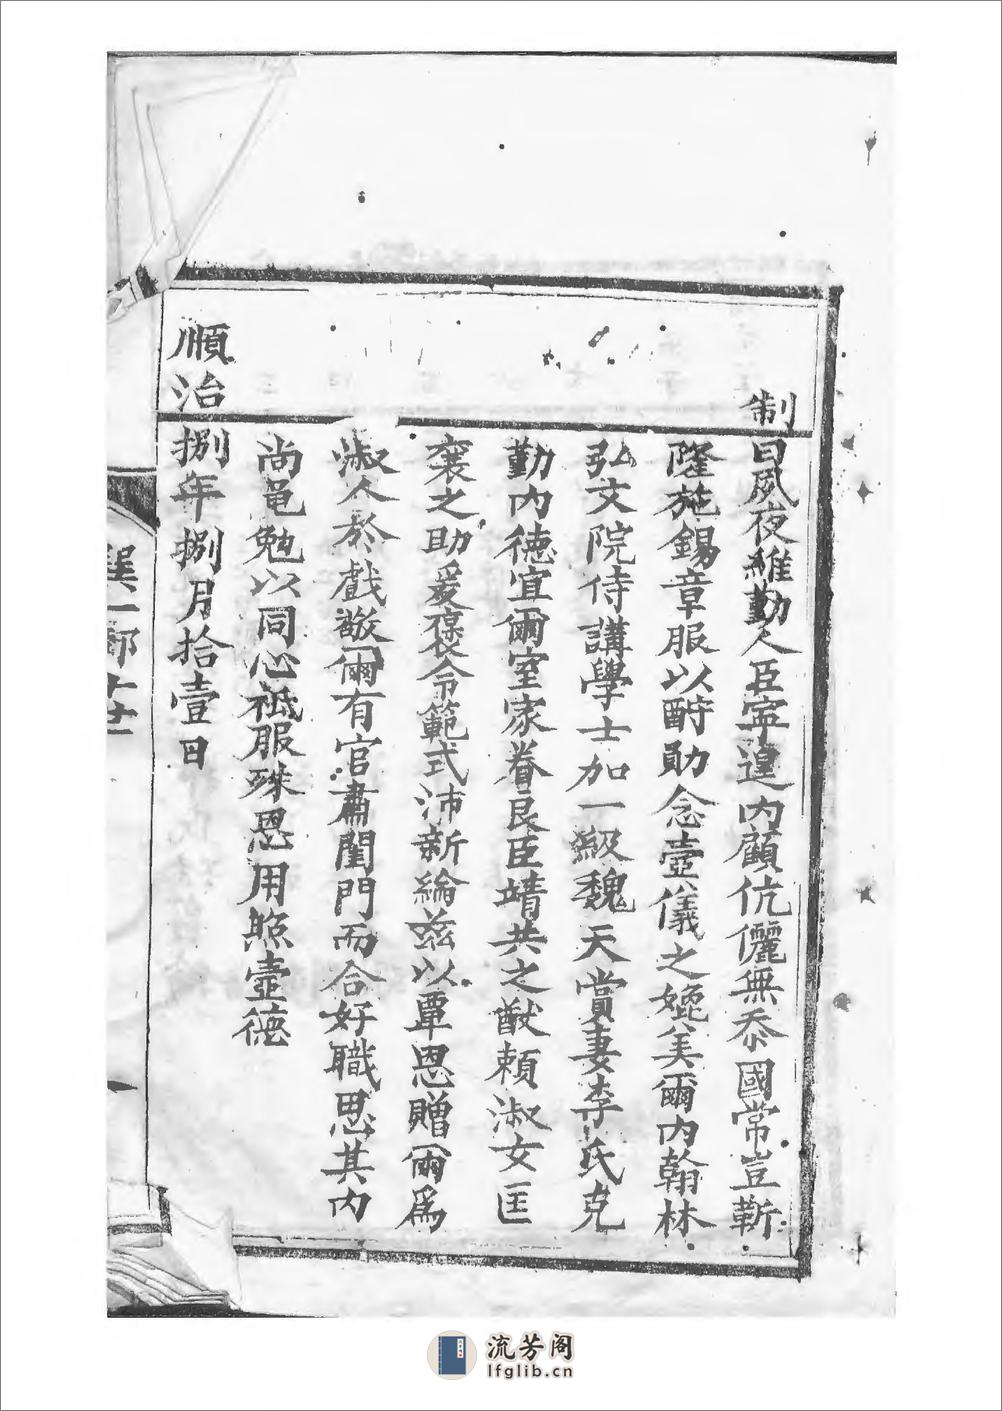 制曰夙夜維勤人臣寧遑內顧伉儷無忝國常豈靳
隆施錫章服以酧勛念壼儀之媲美爾內翰林
弘文院侍講學士加一級魏天賞妻李氏克
勤內德宜爾室家眷良臣靖共之猷頼淑女匡
襄之助爰葆令範式沛新綸兹以覃恩贈爾爲
淑人於戲敬爾有官肅閨門而合好職思其內
尚黽勉以同心祇服殊恩用照壼德
順治捌年捌月拾壹日
巽一部
流芳阁
lfglib.cn